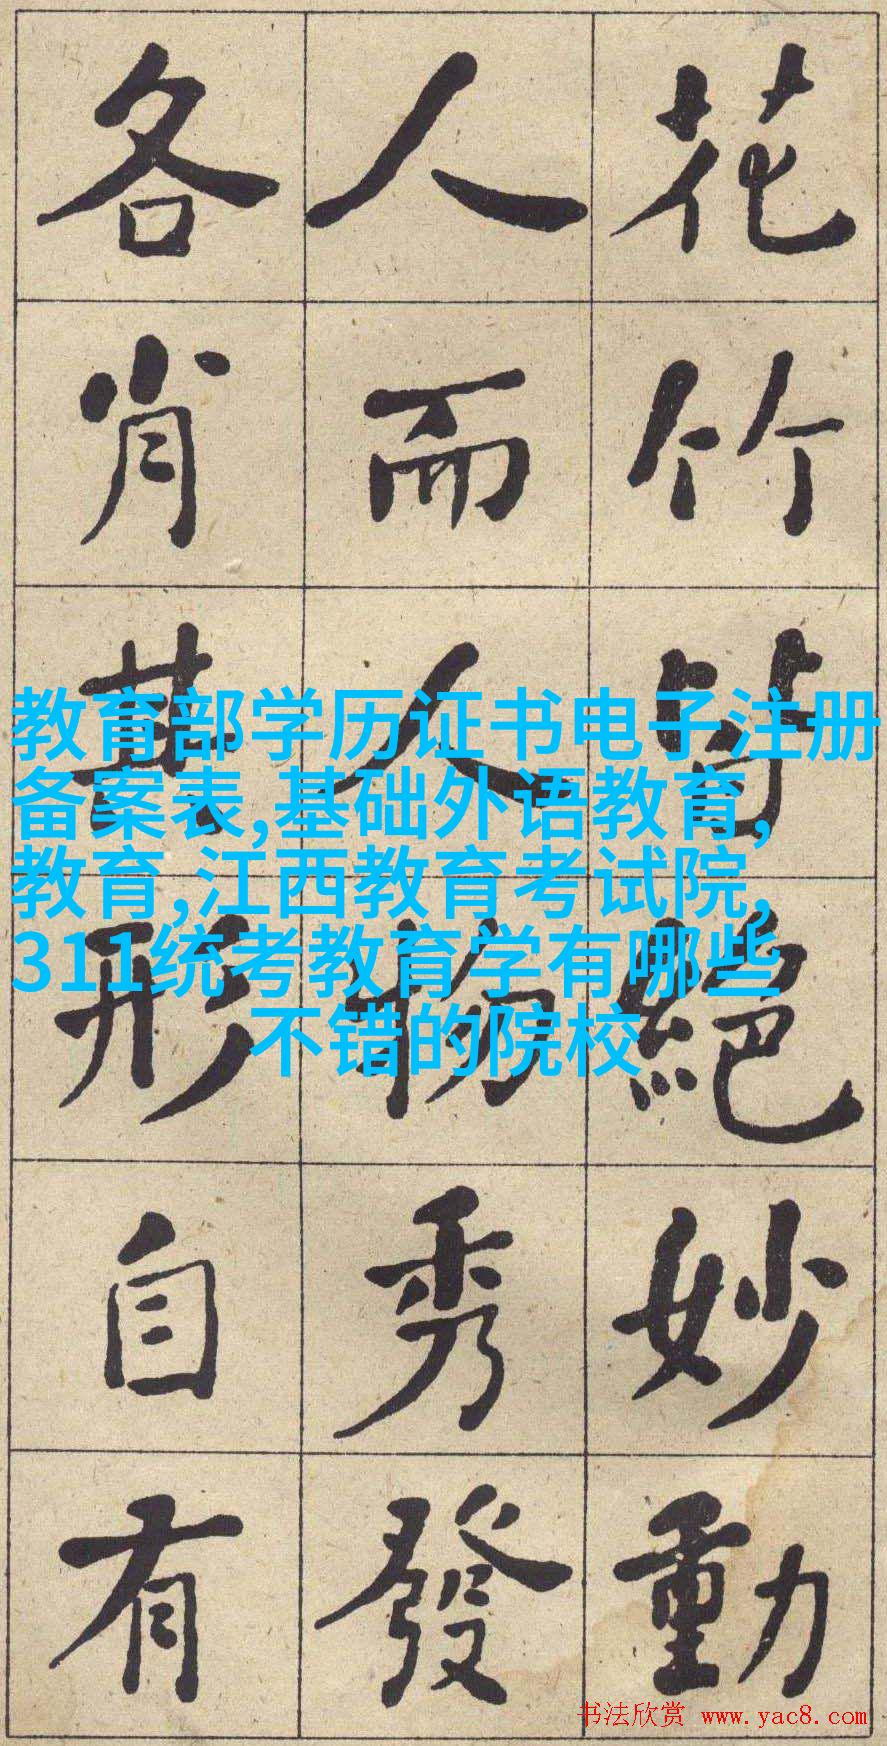 花竹皆絕妙動
人而人物秀發
各肖其形自有
教育部学历证书电子注册
备案表,基础外语教育,
教育,江西教育考试院,
311统考教育学有哪些
不错的院校
书法欣赏 www.yac8.com